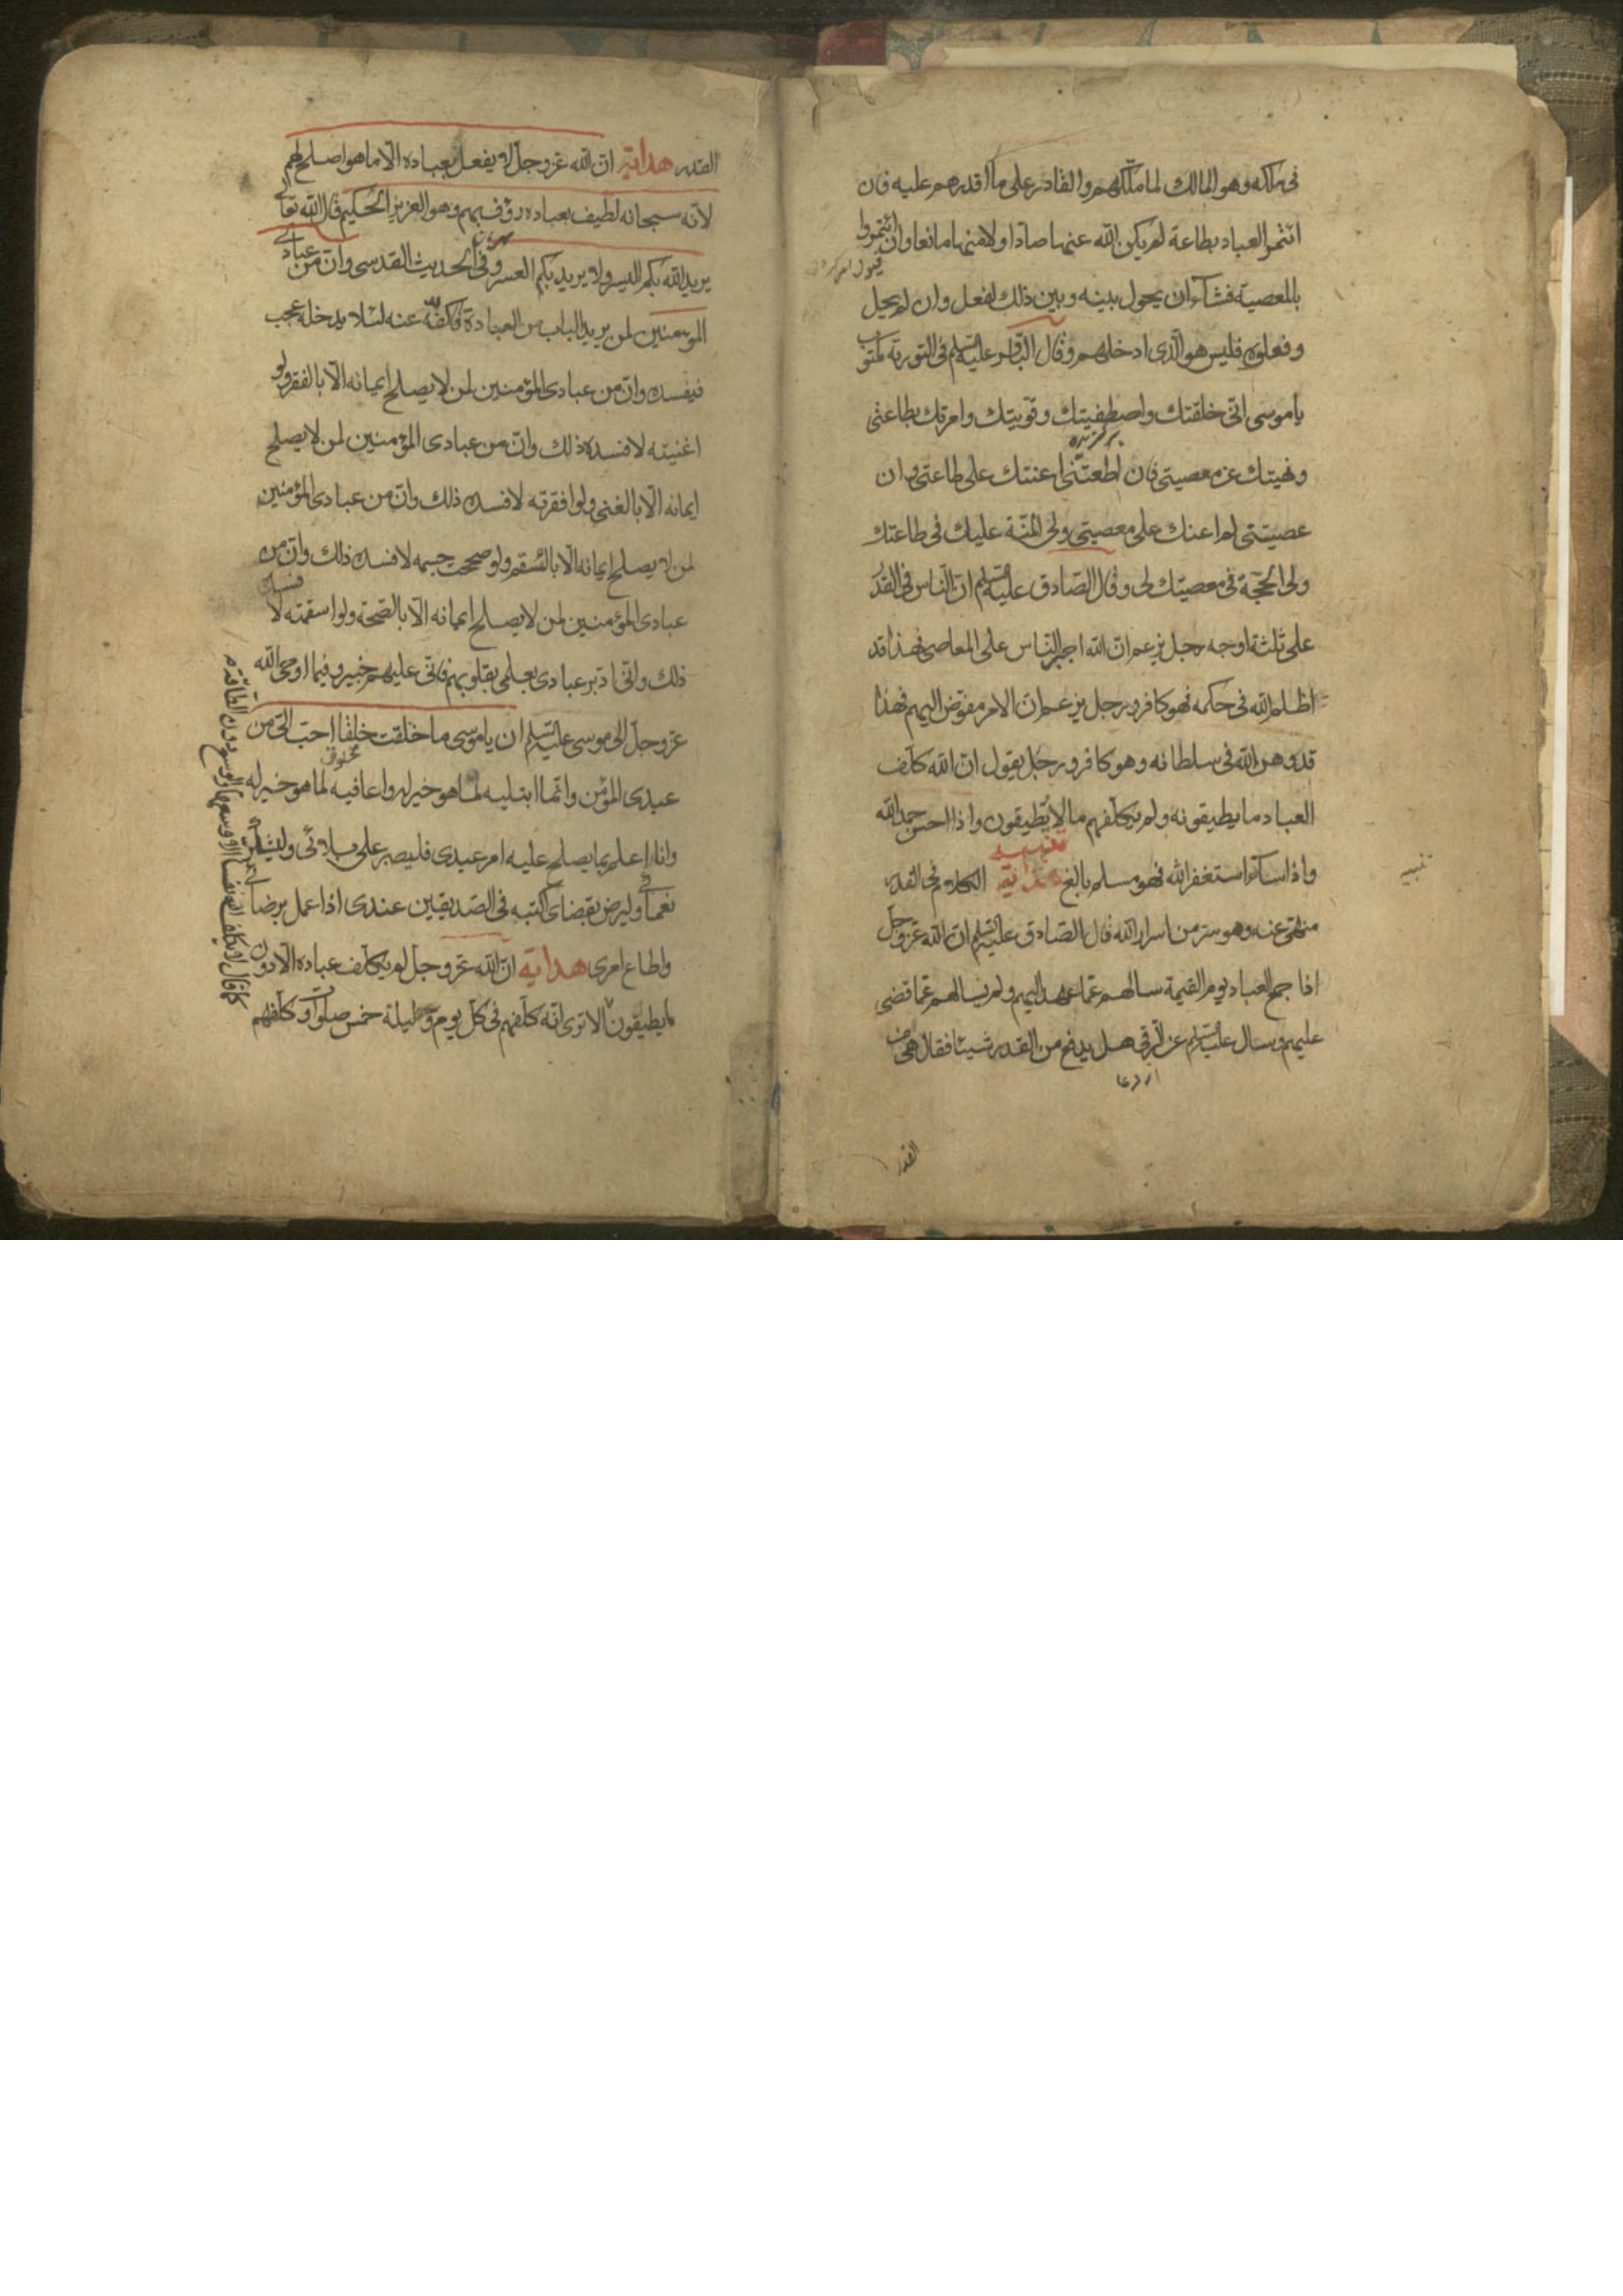 فى ملكه وهو المالك لما ملّكهم والقادر على ما اقدرهم عليه فان
ائتمر العباد بطاعة لم يكن الله عنها صادّا ولا منها مانعا وان ائتمروا
بالمعصية فشآء ان يحول بينه وبين ذلك لفعل وان لم يحل
وفعلوه فليس هو الّذى ادخلهم وقال الباقر عليه السّلم فى التورية مكتوب
ياموسى انّى خلقتك واصطفيتك وقوّيتك وامرتك بطاعتى
برگزیده
ونهيتك عن معصيتى فان اطعتنى اعنتك على طاعتى وان
عصيتنى لم اعنك على معصيتى ولى المنّة عليك فى طاعتك
ولى الحجّة فى معصيتك لى وقال الصّادق عليه السّلم انّ النّاس فى القدر
على ثلثة اوجه رجل يزعم انّ الله اجبر النّاس على المعاصى فهذا قد
اظلم الله فى حكمه فهو كافر ورجل يزعم انّ الامر مفوّض اليهم فهذا
قد وهن الله فى سلطانه وهو كافر ورجل يقول انّ الله كلّف
العباد ما يطيقونه ولم يكلّفهم ما لا يطيقون واذا احسن حمد الله
تنبيه
واذا اسآء استغفر الله فهو مسلم بالغ هداية الكلام فى القدر
تنبيه
منهىّ عنه وهو سرّ من اسرار الله قال الصّادق عليه السّلم انّ الله عزّ وجلّ
اذا جمع العباد يوم القيمة سالهم عمّا عهد اليهم ولم يسالهم عمّا قضى
عليهم وسال عليه السّلم عن الرّقى هل يدفع من القدر شيئا فقال هى من
القدر
القدر هداية انّ الله عزّ وجلّ لا يفعل بعباده الّا ما هو اصلح لهم
لانّه سبحانه لطيف بعباده رؤف بهم وهو العزيز الحكيم قال الله تعالى
يريد الله بكم اليسر ولا يريد بكم العسر وفى الحديث القدسى وانّ من عبادى
المؤمنين لمن يريد الباب من العبادة فاكفّه عنه لئلا يدخله عجب
فيفسده وانّ من عبادى المؤمنين لمن لا يصلح ايمانه الّا بالفقر ولو
اغنيته لافسده ذلك وانّ من عبادى المؤمنين لمن لا يصلح
ايمانه الّا بالغنى ولو افقرته لافسده ذلك وانّ من عبادى المؤمنين
لمن لا يصلح ايمانه الّا بالسّقم ولو صححت جسمه لافسده ذلك وانّ من
عبادى المؤمنين لمن لا يصلح ايمانه الّا بالصّحة ولو اسقمته لافسده
ذلك وانّى ادبّر عبادى بعلمى بقلوبهم فانّى عليهم خبير وفيما اوحى الله
عزّ وجلّ الى موسى عليه السّلم ان ياموسى ما خلقت خلقا احبّ الىّ من
مخلوق
عبدى المؤمن وانّما ابتليه لما هو خير له واعافيه لما هو خير له
وانا اعلم بما يصلح عليه امر عبدى فليصبر على بلائى وليشكر
نعمائى وليرض بقضاى اكتبه فى الصّديقين عندى اذا عمل برضائى
واطاع امرى هداية انّ الله عزّ وجلّ لم يكلّف عباده الّا دون
ما يطيقون الا ترى انّه كلّفهم فى كلّ يوم وليلة خمس صلوات وكلّفهم
كما قال لا يكلّف الله نفسا الا وسعها والوسع دون الطاقة